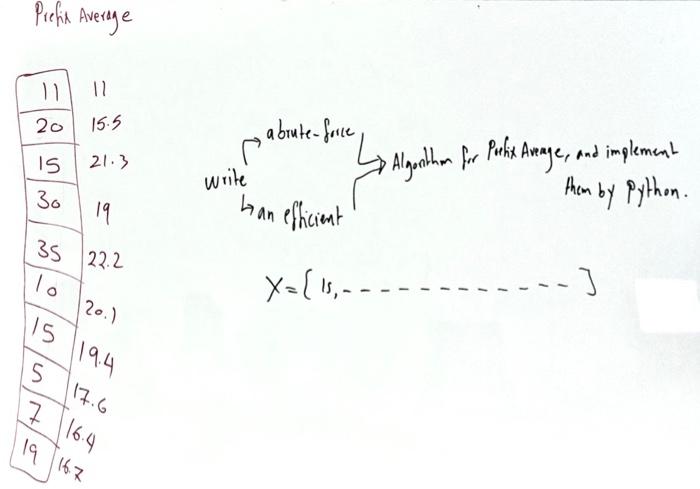 Prefix Average
11 11
20 15.5
15 21.3
30 19
35 22.2
10 20.1
15 19.4
5 17.6
7 16.4
19 16.7
write
a brute-force
an efficient
Algorithm for Prefix Average, and implement
them by Python.
X = [ 15, - - - - - - - - - - - - - ]